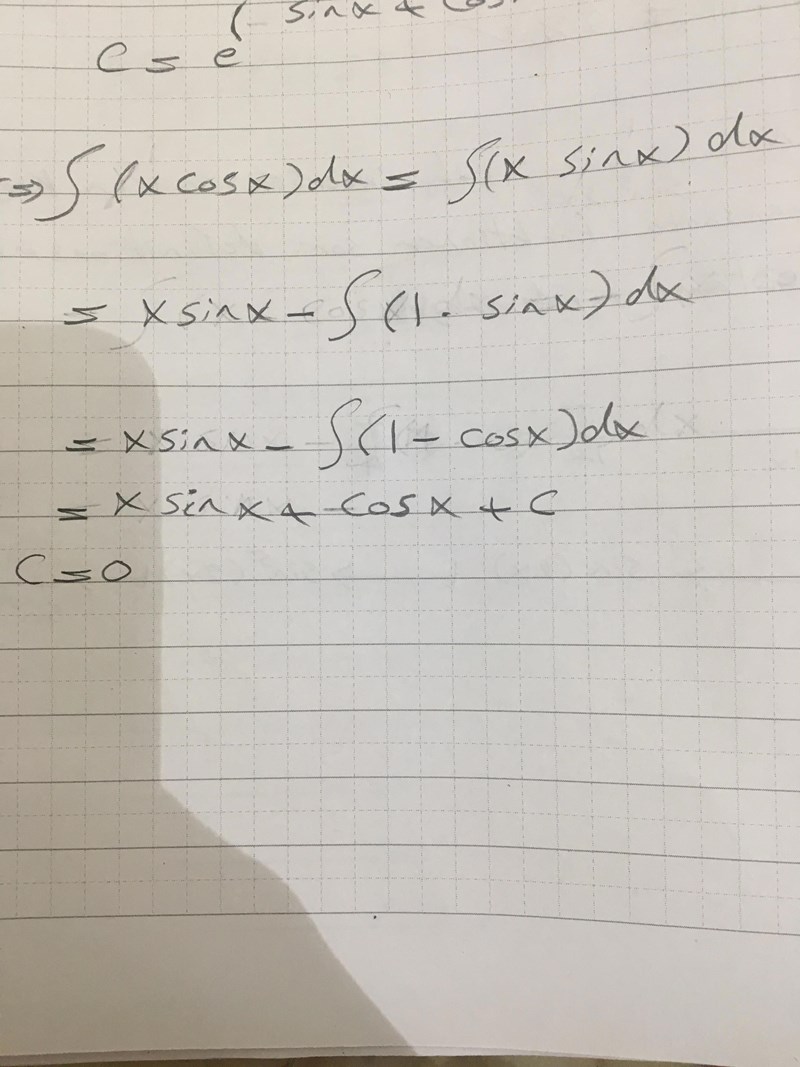 C = e^(- sinx + cos
⇒ ∫ (x cosx) dx = ∫(x sinx) dx
= x sinx - ∫ (1 . sinx) dx
= x sinx - ∫ (1 - cosx) dx
= x sinx + cosx + C
C = 0